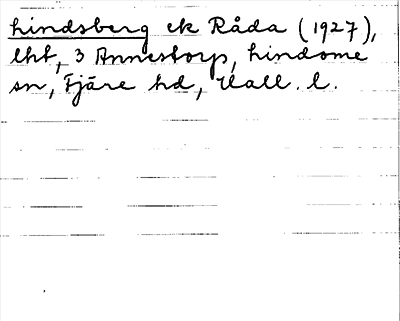 Lindsberg ek Råda (1927),
lht, 3 Annestorp, Lindome
sn, Fjäre hd, Hall. l.